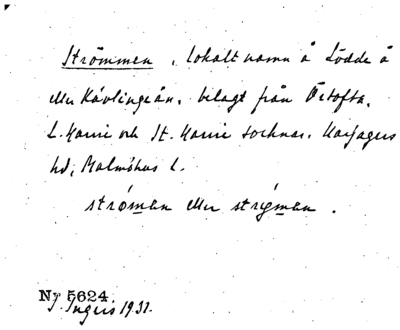 Strömmen, lokalt namn å Lödde å
eller Kävlingeån, belagt från Örtofta,
L. Harrie och St. Harrie socknar, Harjagers
hd, Malmöhus l.
strö́man eller
No 5624
J. Ingers 1931.